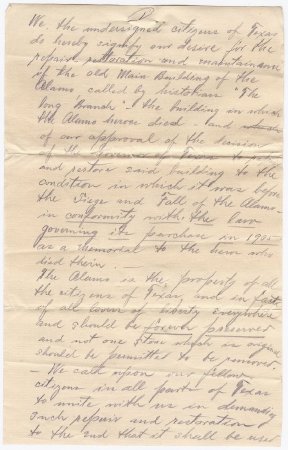 We, the undersigned citizens of Texas
do hereby signify our desire for the
repair, restoration and maintainance
of the old Main Building of the
Alamo called by historians "The
Long Branch" - the building in which
the Alamo heroes died - and
of our approval of the decision
of the Governor of Texas to
and restore said building to the
condition in which it was before
the Siege and Fall of the Alamo -
in conformity with the law
governing its purchase in 1905
as a memorial to the hero who
died therin. -
The Alamo is the property of all
the citizens of Texas, and in fact
of all lover of liberty everywhere
and should be forever preserved
and not one stone which is original
should be permitted to be removed.
- We call upon our fellow
citizens in all parts of Texas
to unite with us in demanding
such repair and restoration
to the end that it shall be used